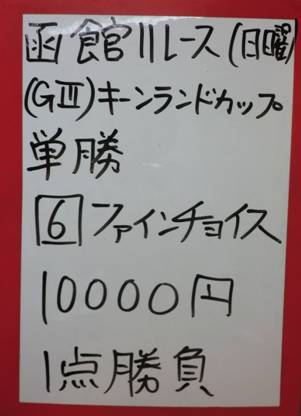 函館11レース(日曜)
(GⅢ)キーンランドカップ
単勝
6 ファインチョイス
10000円
1点勝負